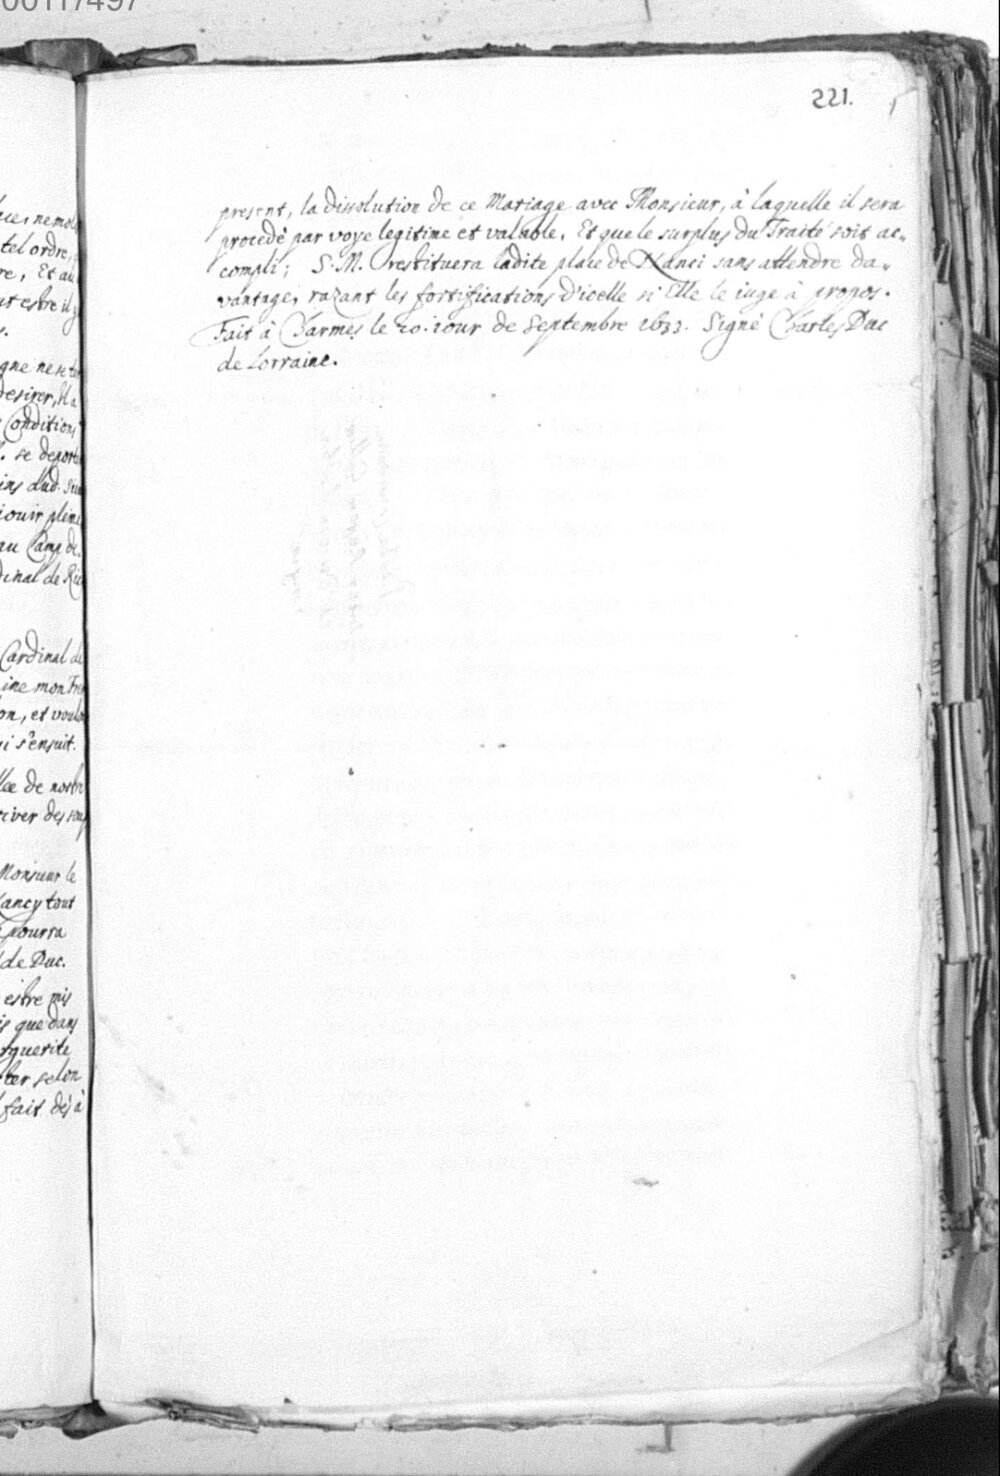 00117497
221.
present, la dissolution de ce Mariage avec Monsieur, à laquelle il sera
procedé par voye legitime et valable, Et que le surplus du Traité soit ac-
compli; S. M. restituera ladite place de Nanci sans attendre da-
vantage, razant les fortifications d'icelle si Elle le iuge à propos.
Fait à Charmes le 20. iour de Septembre 1633. Signé Charles Duc
de Lorraine.
tel ordre,
re, Et au
gne ne se
desirer,
Conditions
se deporte
iouir pleine
au Camp de
Cardinal de
ine mon
on, et
i s'ensuit.
de nostre
river des
Monsieur le
ancy tout
pourra
de Duc.
estre mis
que dans
rguerite
ter selon
fait desjà